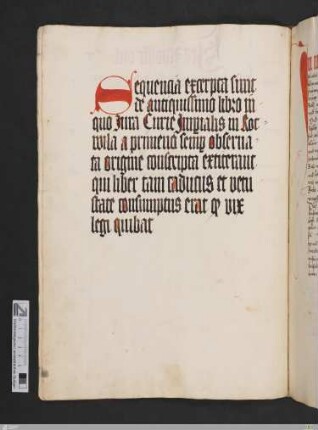 Sequencia excerpta sunt
de antiquissimo libro in
quo Jura Curie Imperialis in Rot
wila a primeuo semper obserua
ta origine conscripta extiterant
qui liber tam caducus et vetu
state consumptus erat quod vix
legi quibat